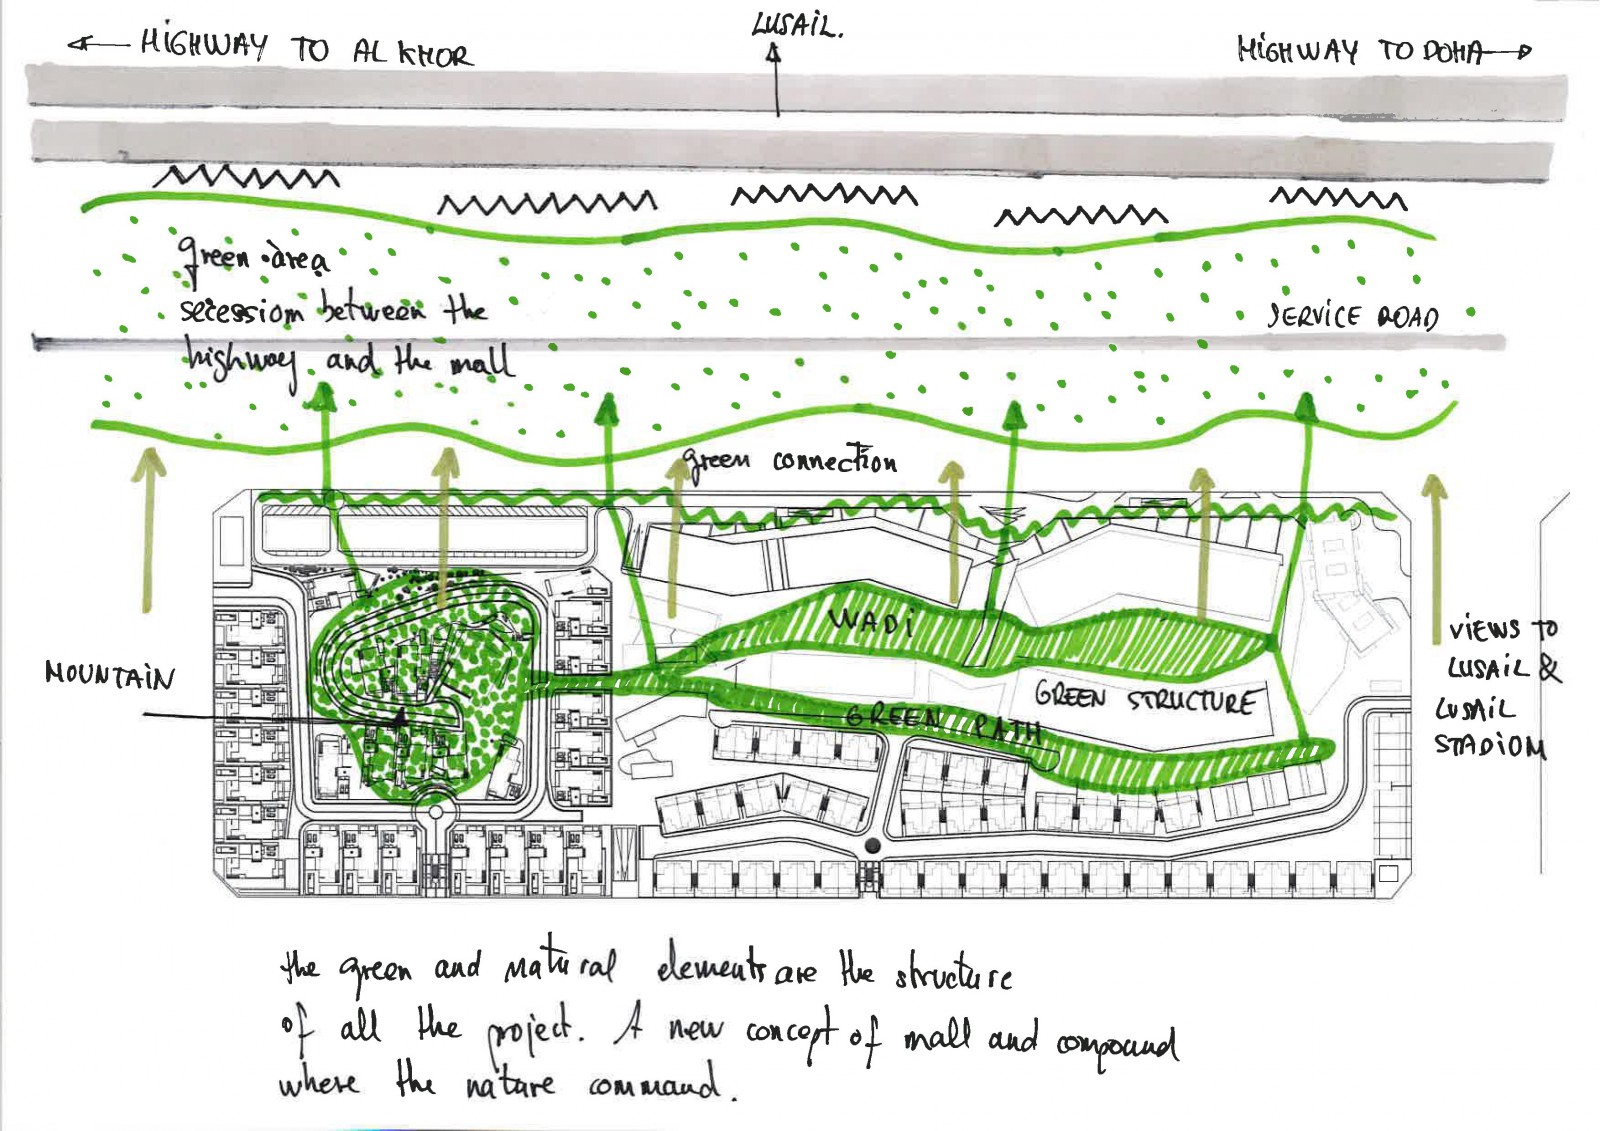 HIGHWAY TO AL KHOR
LUSAIL.
HIGHWAY TO DOHA
green area
secession between the
highway and the mall
SERVICE ROAD
green connection
WADI
MOUNTAIN
GREEN STRUCTURE
GREEN PATH
VIEWS TO
LUSAIL &
LUSAIL
STADIOM
the green and natural elements are the structure
of all the project. A new concept of mall and compound
where the nature command.